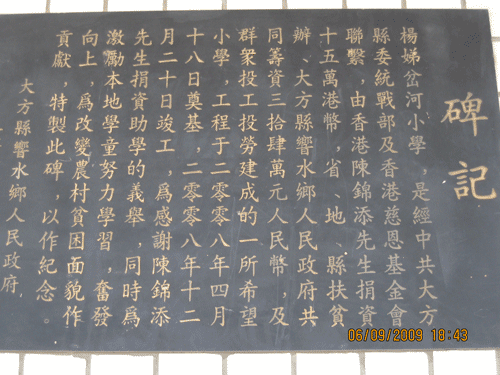 碑記
楊娣岔河小學，是經中共大方
縣委統戰部及香港慈恩基金會
聯繫，由香港陳錦添先生捐資
十五萬港幣，省、地、縣扶貧
辦、大方縣響水鄉人民政府共
同籌資三拾肆萬元人民幣及
群衆投工投勞建成的一所希望
小學，工程于二零零八年四月
十八日奠基，二零零八年十二
月二十日竣工，爲感謝陳錦添
先生捐資助學的義舉，同時爲
激勵本地學童努力學習，奮發
向上，爲改變農村貧困面貌作
貢獻，特製此碑，以作紀念。
大方縣響水鄉人民政府
06/09/2009 18:43